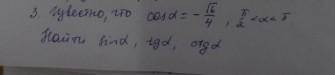 3. Известно, что cosα = -√6/4, π/2 < α < π
Найти sinα, tgα, ctgα